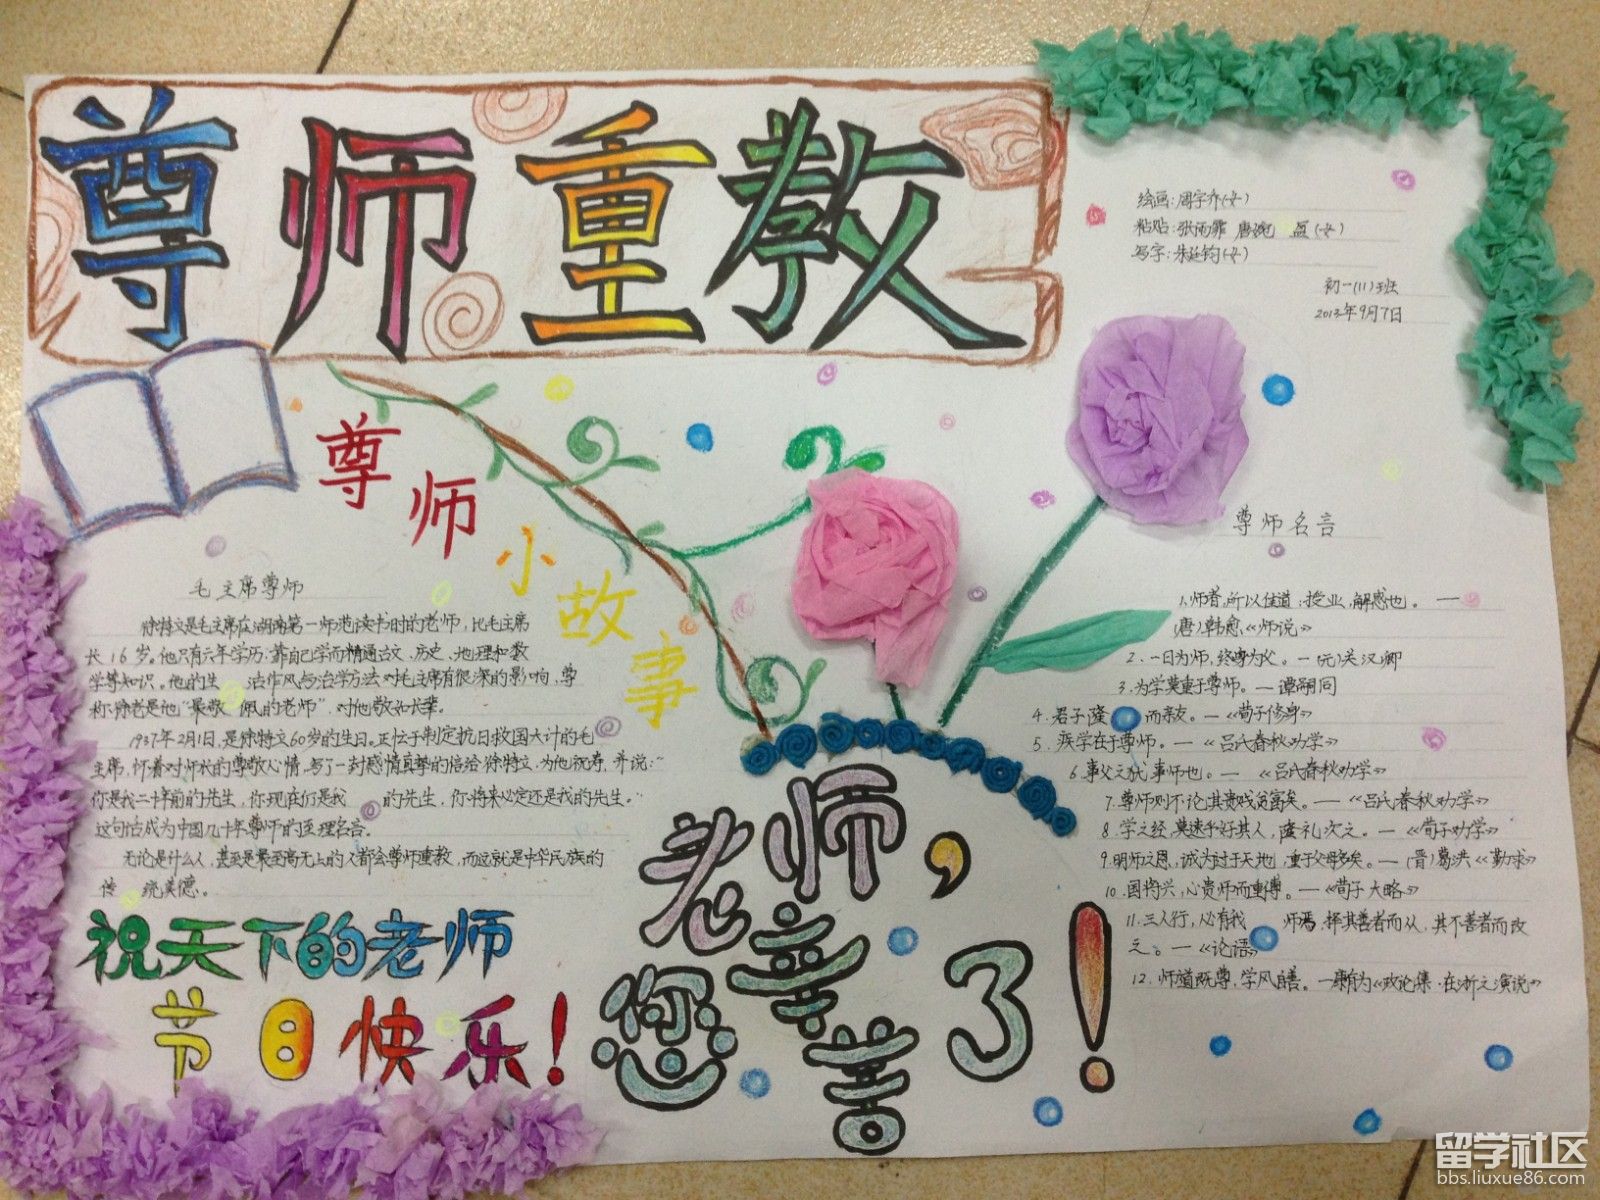 尊师重教
绘画:周宇齐(女)
粘贴:张雨霏 唐婉 盈(女)
写字:朱廷钧(女)
初一(11)班
2013年9月7日
尊师小故事
毛主席尊师
徐特立是毛主席在湖南第一师范读书时的老师,比毛主席
长16岁。他只有六年学历,靠自己学而精通古文、历史、地理和数
学等知识。他的生 活作风与治学方法对毛主席有很深的影响,尊
称徐老是他“最敬 佩的老师”,对他敬如长辈。
1937年2月1日,是徐特立60岁的生日。正忙于制定抗日救国大计的毛
主席,怀着对师长的尊敬心情,写了一封感情真挚的信给徐特立,为他祝寿,并说:“
你是我二十年前的先生,你现在仍是我 的先生,你将来必定还是我的先生。”
这句话成为中国几十年尊师的至理名言。
无论是什么人,甚至是最至高无上的人都会尊师重教,而这就是中华民族的
传 统美德。
祝天下的老师
节日快乐!
老师,
您辛苦了!
尊师名言
1.师者,所以传道;授业,解惑也。一
(唐)韩愈《师说》
2.一日为师,终身为父。一(元)关汉卿
3.为学莫重于尊师。一谭嗣同
4.君子隆 而亲友。一《荀子修身》
5.疾学在于尊师。一《吕氏春秋劝学》
6.事父之犹事师也。一 《吕氏春秋劝学》
7.尊师则不论其贵贱贫富矣。一《吕氏春秋劝学》
8.学之经,莫速乎好其人,隆礼次之。一《荀子劝学》
9.明师之恩,诚为过于天地,重于父母多矣。一(晋)葛洪《勤求》
10.国将兴,心贵师而重傅。一《荀子大略》
11.三人行,必有我 师焉,择其善者而从,其不善者而改
之。一《论语》
12.师道既尊,学风自善。一康有为《政论集·在浙之演说》
留学社区
bbs.liuxue86.com